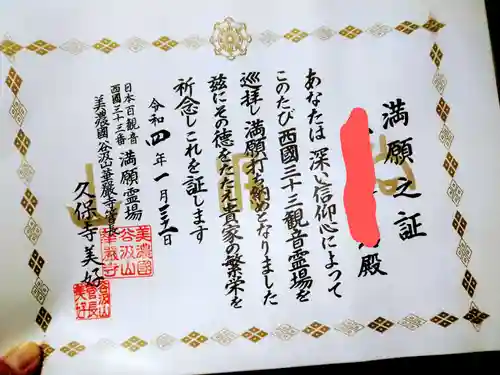 満願之証
殿
あなたは深い信仰心によって
このたび西國三十三観音霊場を
巡拝し満願打ち納めとなりました
茲にその徳をたたえ貴家の繁栄を
祈念しこれを証します
令和四年一月三十一日
日本百観音
西國三十三番
満願霊場
美濃國谷汲山華厳寺管長
久保寺美好
美濃國
谷汲山
華厳寺